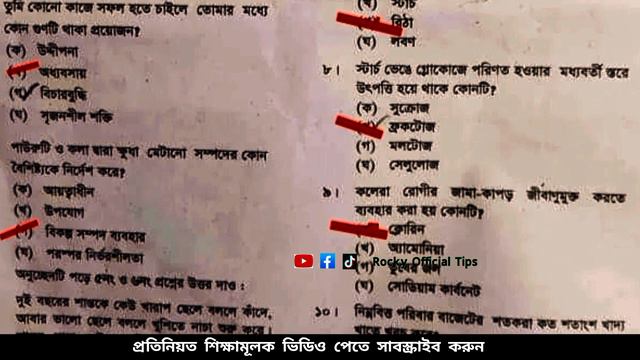 তুমি কোনো কাজে সফল হতে চাইলে তোমার মধ্যে
কোন গুণটি থাকা প্রয়োজন?
(ক) উদ্দীপনা
অধ্যবসায়
(গ) বিচারবুদ্ধি
(ঘ) সৃজনশীল শক্তি
পাউরুটি ও কলা দ্বারা ক্ষুধা মেটানো সম্পদের কোন
বৈশিষ্ট্যকে নির্দেশ করে?
(ক) আয়ত্বাধীন
(খ) উপযোগ
বিকল্প সম্পদ ব্যবহার
(ঘ) পরস্পর নির্ভরশীলতা
অনুচ্ছেদটি পড়ে ৫নং ও ৬নং প্রশ্নের উত্তর দাও :
দুই বছরের শান্তকে কেউ খারাপ ছেলে বললে কাঁদে,
আবার ভালো ছেলে বললে খুশিতে নাচা শুরু করে।
(খ) স্টার্চ
রিঠা
(ঘ) লবণ
৮। স্টার্চ ভেঙে গ্লুকোজে পরিণত হওয়ার মধ্যবর্তী স্তরে
উৎপত্তি হয়ে থাকে কোনটি?
(ক) সুক্রোজ
ফ্রুকটোজ
(গ) মলটোজ
(ঘ) সেলুলোজ
৯। কলেরা রোগীর জামা-কাপড় জীবাণুমুক্ত করতে
ব্যবহার করা হয় কোনটি?
ক্লোরিন
(খ) অ্যামোনিয়া
(গ) চুনের জল
(ঘ) সোডিয়াম কার্বনেট
Rocky Official Tips
১০। নিম্নবিত্ত পরিবার বাজেটের শতকরা কত শতাংশ খাদ্য
প্রতিনিয়ত শিক্ষামূলক ভিডিও পেতে সাবস্ক্রাইব করুন